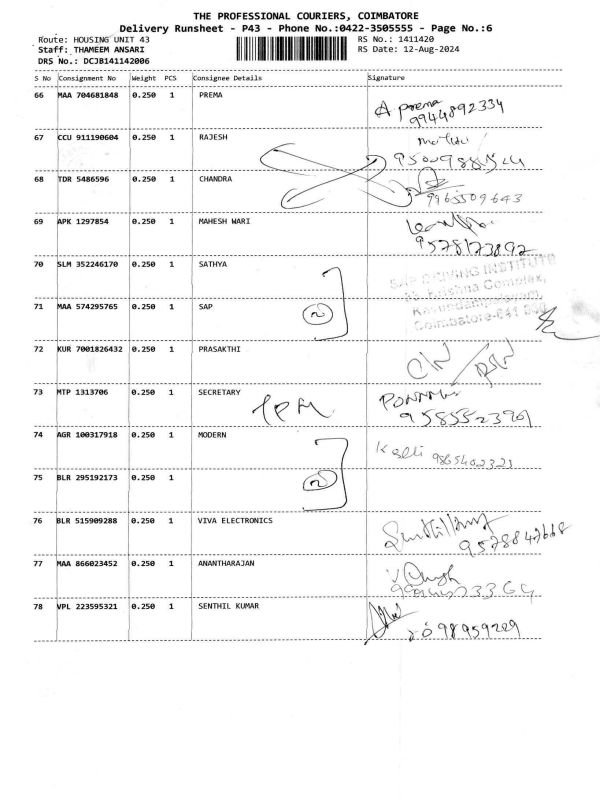 THE PROFESSIONAL COURIERS, COIMBATORE
Delivery Runsheet - P43 - Phone No.:0422-3505555 - Page No.:6
Route: HOUSING UNIT 43 RS No.: 1411420
Staff: THAMEEM ANSARI RS Date: 12-Aug-2024
DRS No.: DCJB141142006
S No Consignment No Weight PCS Consignee Details Signature
66 MAA 704681848 0.250 1 PREMA A prema
9944892334
67 CCU 911190604 0.250 1 RAJESH
68 TDR 5486596 0.250 1 CHANDRA 9965509643
69 APK 1297854 0.250 1 MAHESH WARI
9578173892
70 SLM 352246170 0.250 1 SATHYA
SAP DRIVING INSTITUTE
Krishna Complex,
71 MAA 574295765 0.250 1 SAP 2
Coimbatore-641
72 KUR 7001826432 0.250 1 PRASAKTHI
73 MTP 1313706 0.250 1 SECRETARY
9585552390
74 AGR 100317918 0.250 1 MODERN 9865402323
75 BLR 295192173 0.250 1 2
76 BLR 515909288 0.250 1 VIVA ELECTRONICS
9578847668
77 MAA 866023452 0.250 1 ANANTHARAJAN
78 VPL 223595321 0.250 1 SENTHIL KUMAR